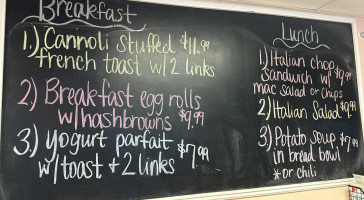 Breakfast
1.) Cannoli stuffed $11.99
french toast w/2 links
2.) Breakfast egg rolls
w/hashbrowns $9.99
3.) yogurt parfait $7.99
w/toast + 2 links
Lunch
1.) Italian chop
Sandwich w/ $9.99
mac salad or chips
2.) Italian Salad $9.99
3.) Potato soup $7.99
in bread bowl
* or chili